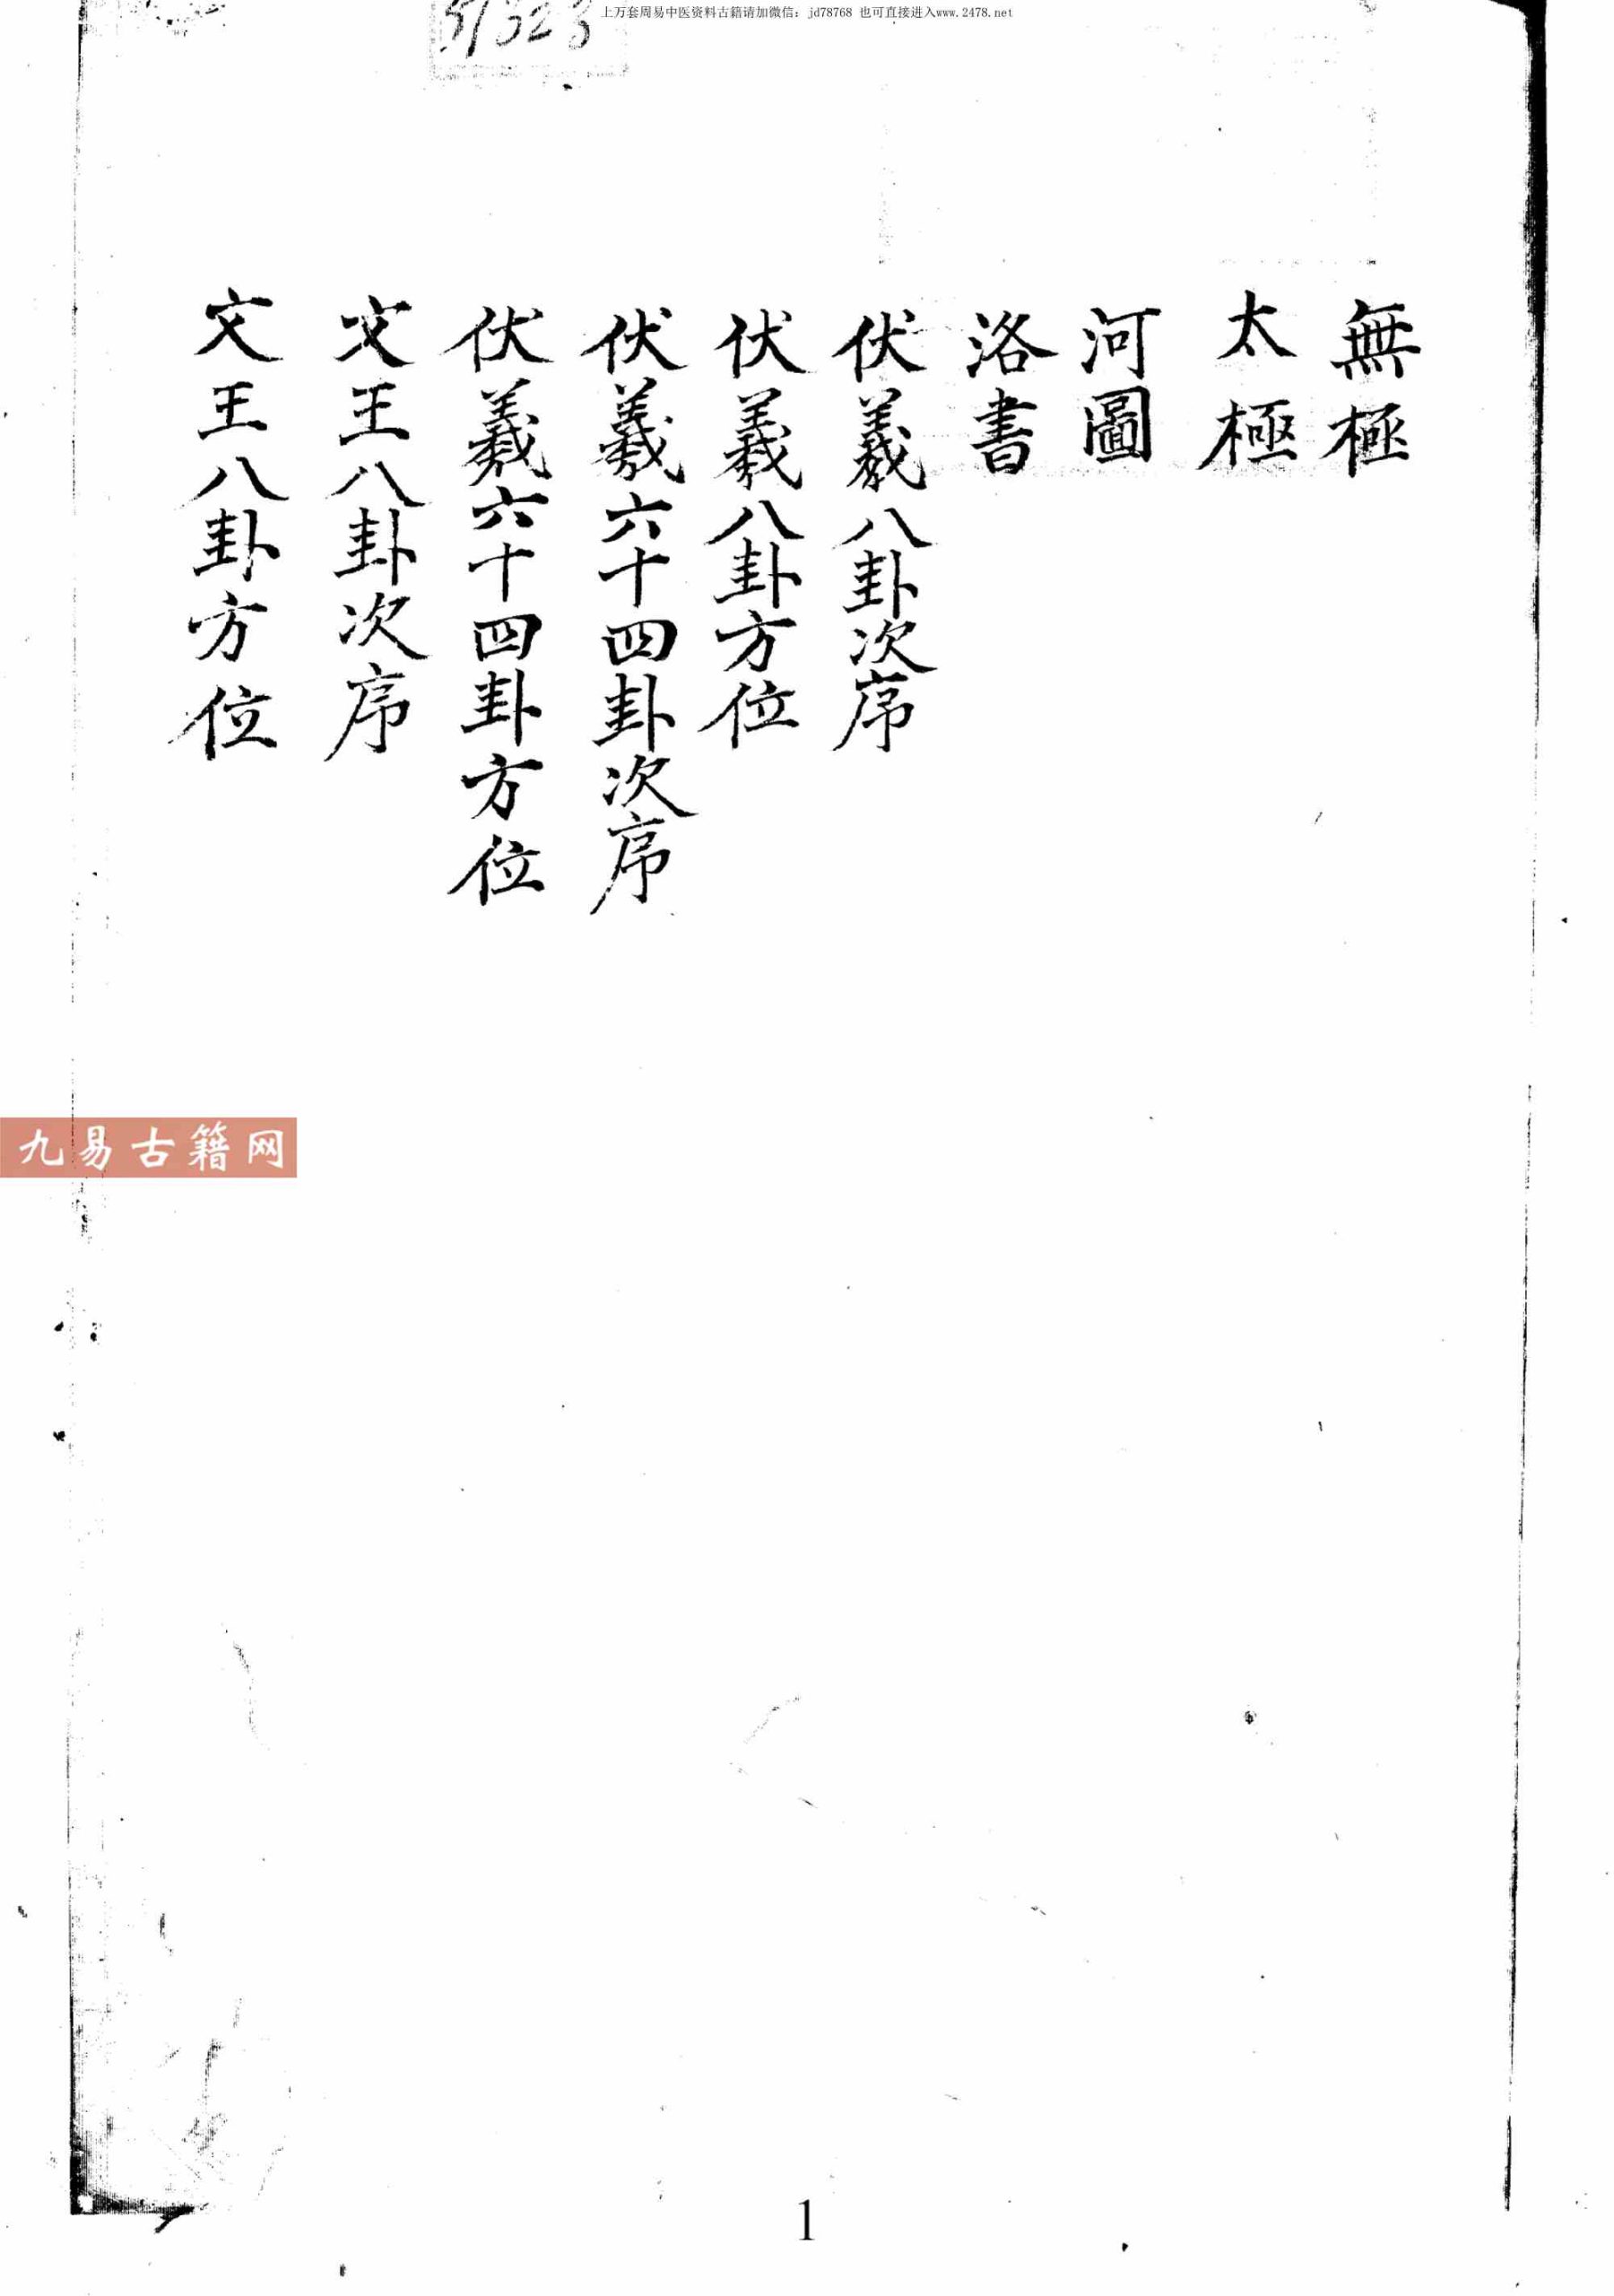 上万套周易中医资料古籍请加微信：jd78768 也可直接进入www.2478.net
無極
太極
河圖
洛書
伏羲八卦次序
伏羲八卦方位
伏羲六十四卦次序
伏羲六十四卦方位
文王八卦次序
文王八卦方位
九易古籍网
1